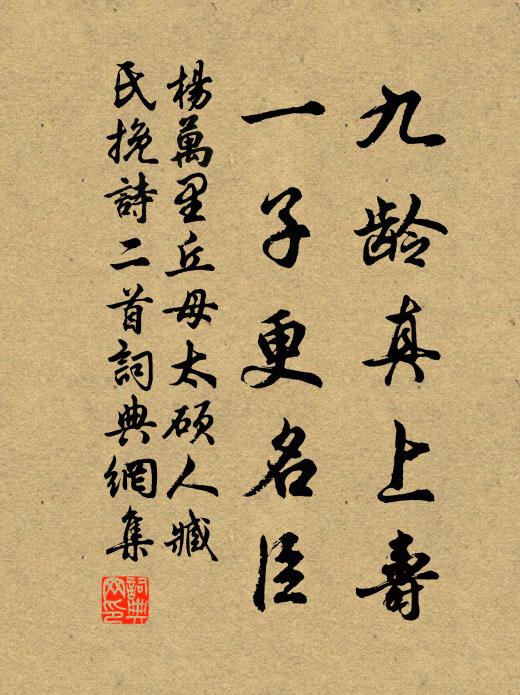 九龄真上壽
一子更名臣
楊萬里丘母太碩人臧
氏挽詩二首詞典網集
詞典网印